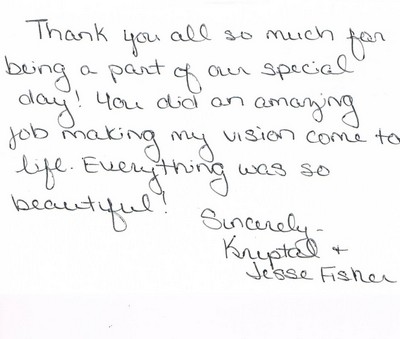 Thank you all so much for
being a part of our special
day! You did an amazing
job making my vision come to
life. Everything was so
beautiful!
Sincerely -
Krystal +
Jesse Fisher